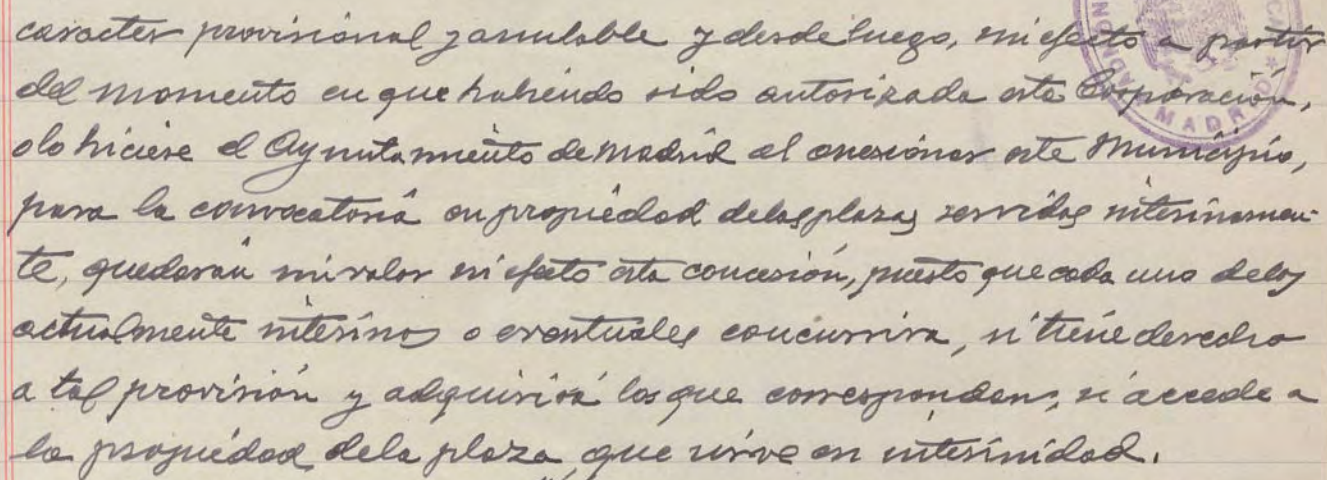 caracter provisional y anulable y desde luego, sin efecto a partir
del momento en que habiendo sido autorizada esta Corporación,
o lo hiciese el Ayuntamiento de Madrid al anexionar este Municipio,
para la convocatoria en propiedad de las plazas servidas interinamen-
te, quedarán sin valor ni efecto esta concesión, puesto que cada uno de los
actualmente interinos o eventuales concurrira, si tiene derecho
a tal provisión y adquirirá los que correspondan, si accede a
la propiedad de la plaza que sirve en interinidad.
MADRID